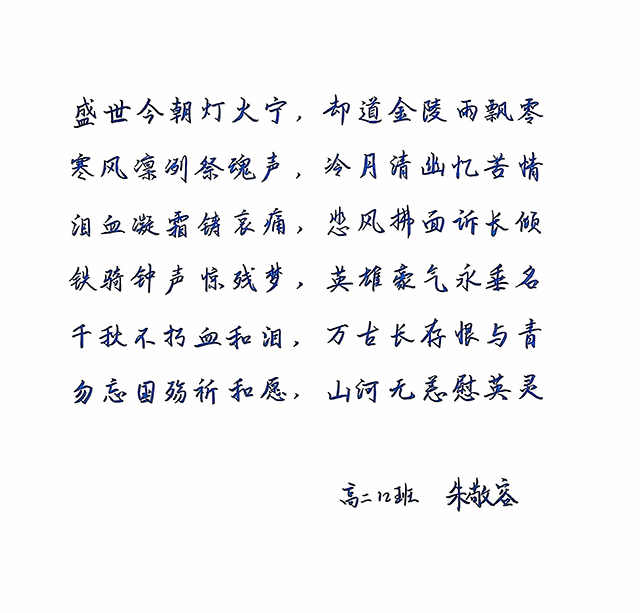 盛世今朝灯火宁，却道金陵雨飘零
寒风凛冽祭魂声，冷月清幽忆苦情
泪血凝霜铸哀痛，悲风拂面诉长倾
铁骑钟声惊残梦，英雄豪气永垂名
千秋不朽血和泪，万古长存恨与青
勿忘国殇祈和愿，山河无恙慰英灵
高二12班 朱敬容